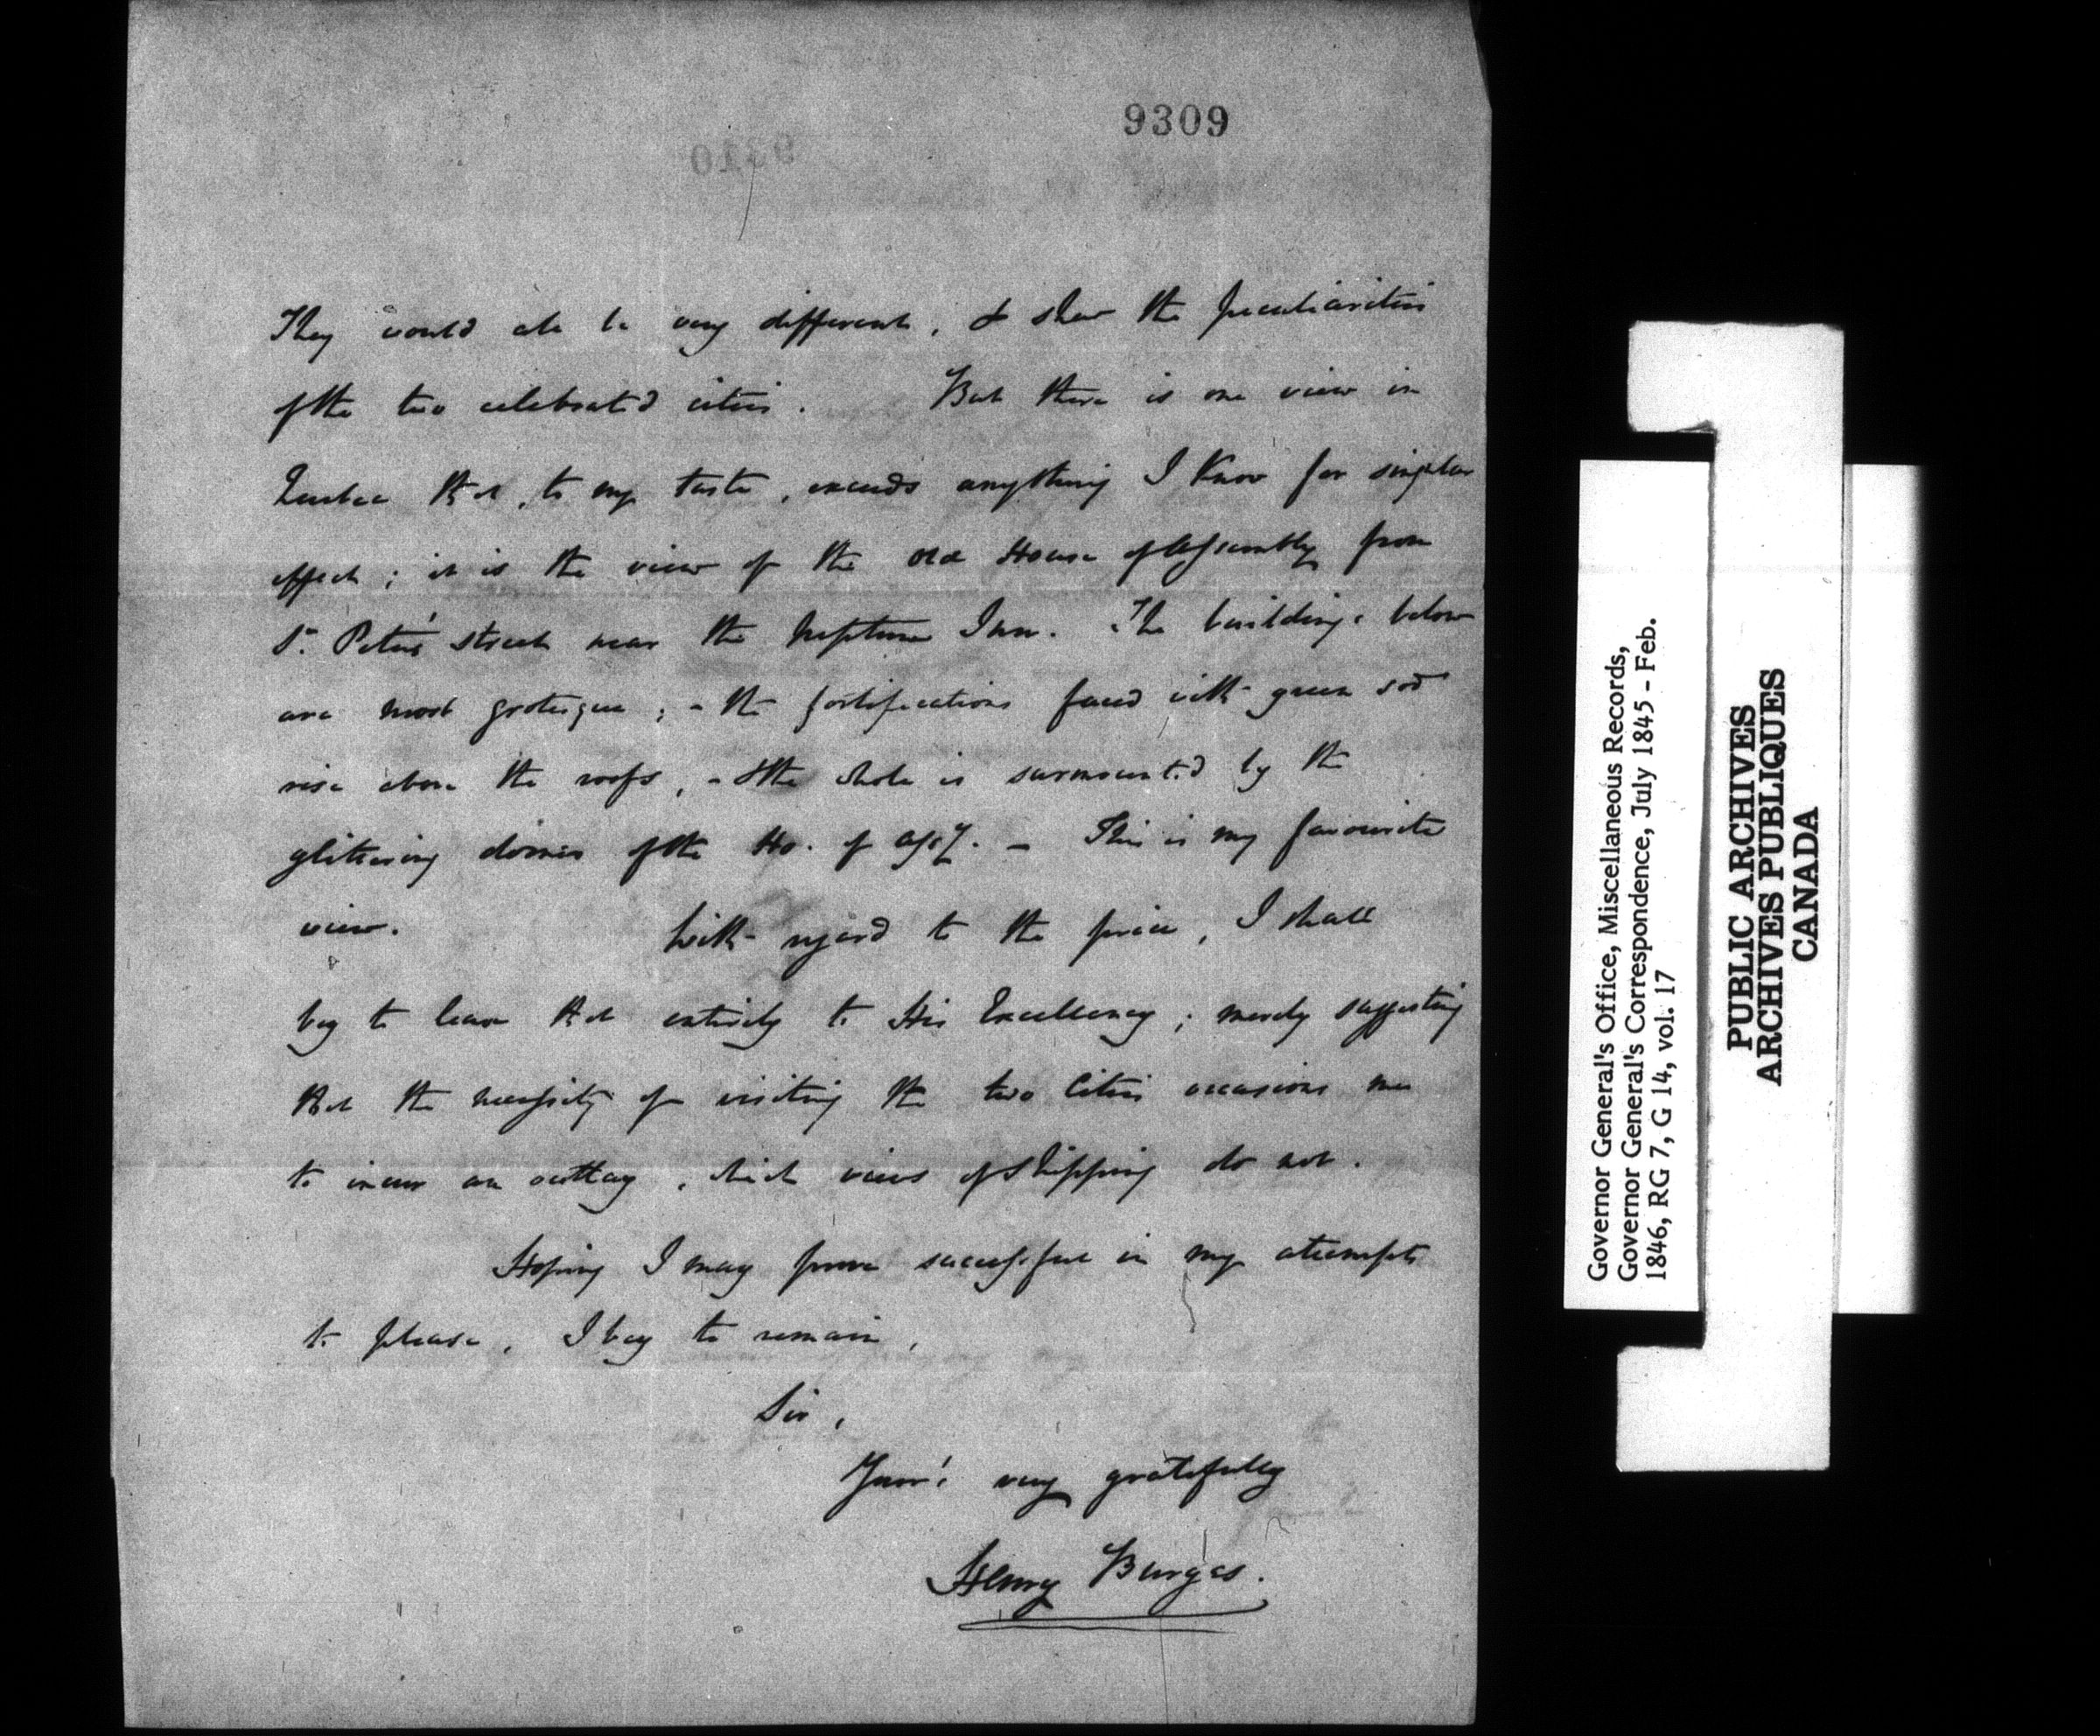 9309
9310
They would also be very different, & show the peculiarities
of the two celebrated cities. But there is one view in
Quebec that, to my taste, exceeds anything I know for singular
effect; it is the view of the old House of Assembly from
St. Peter's street near the Neptune Inn. The buildings below
are most grotesque; - the fortifications faced with green sod
rise above the roofs, - & the whole is surmounted by the
glittering domes of the Ho. of Assy. - This is my favourite
view. With regard to the price, I shall
beg to leave that entirely to His Excellency; merely suggesting
that the necessity of visiting the two Cities occasions me
to incur an outlay, which views of shipping do not.
Hoping I may prove successful in my attempts
to please, I beg to remain,
Sir,
Your's very gratefully
Henry Burges.
Governor General's Office, Miscellaneous Records,
Governor General's Correspondence, July 1845 - Feb.
1846, RG 7, G 14, vol. 17
PUBLIC ARCHIVES
ARCHIVES PUBLIQUES
CANADA